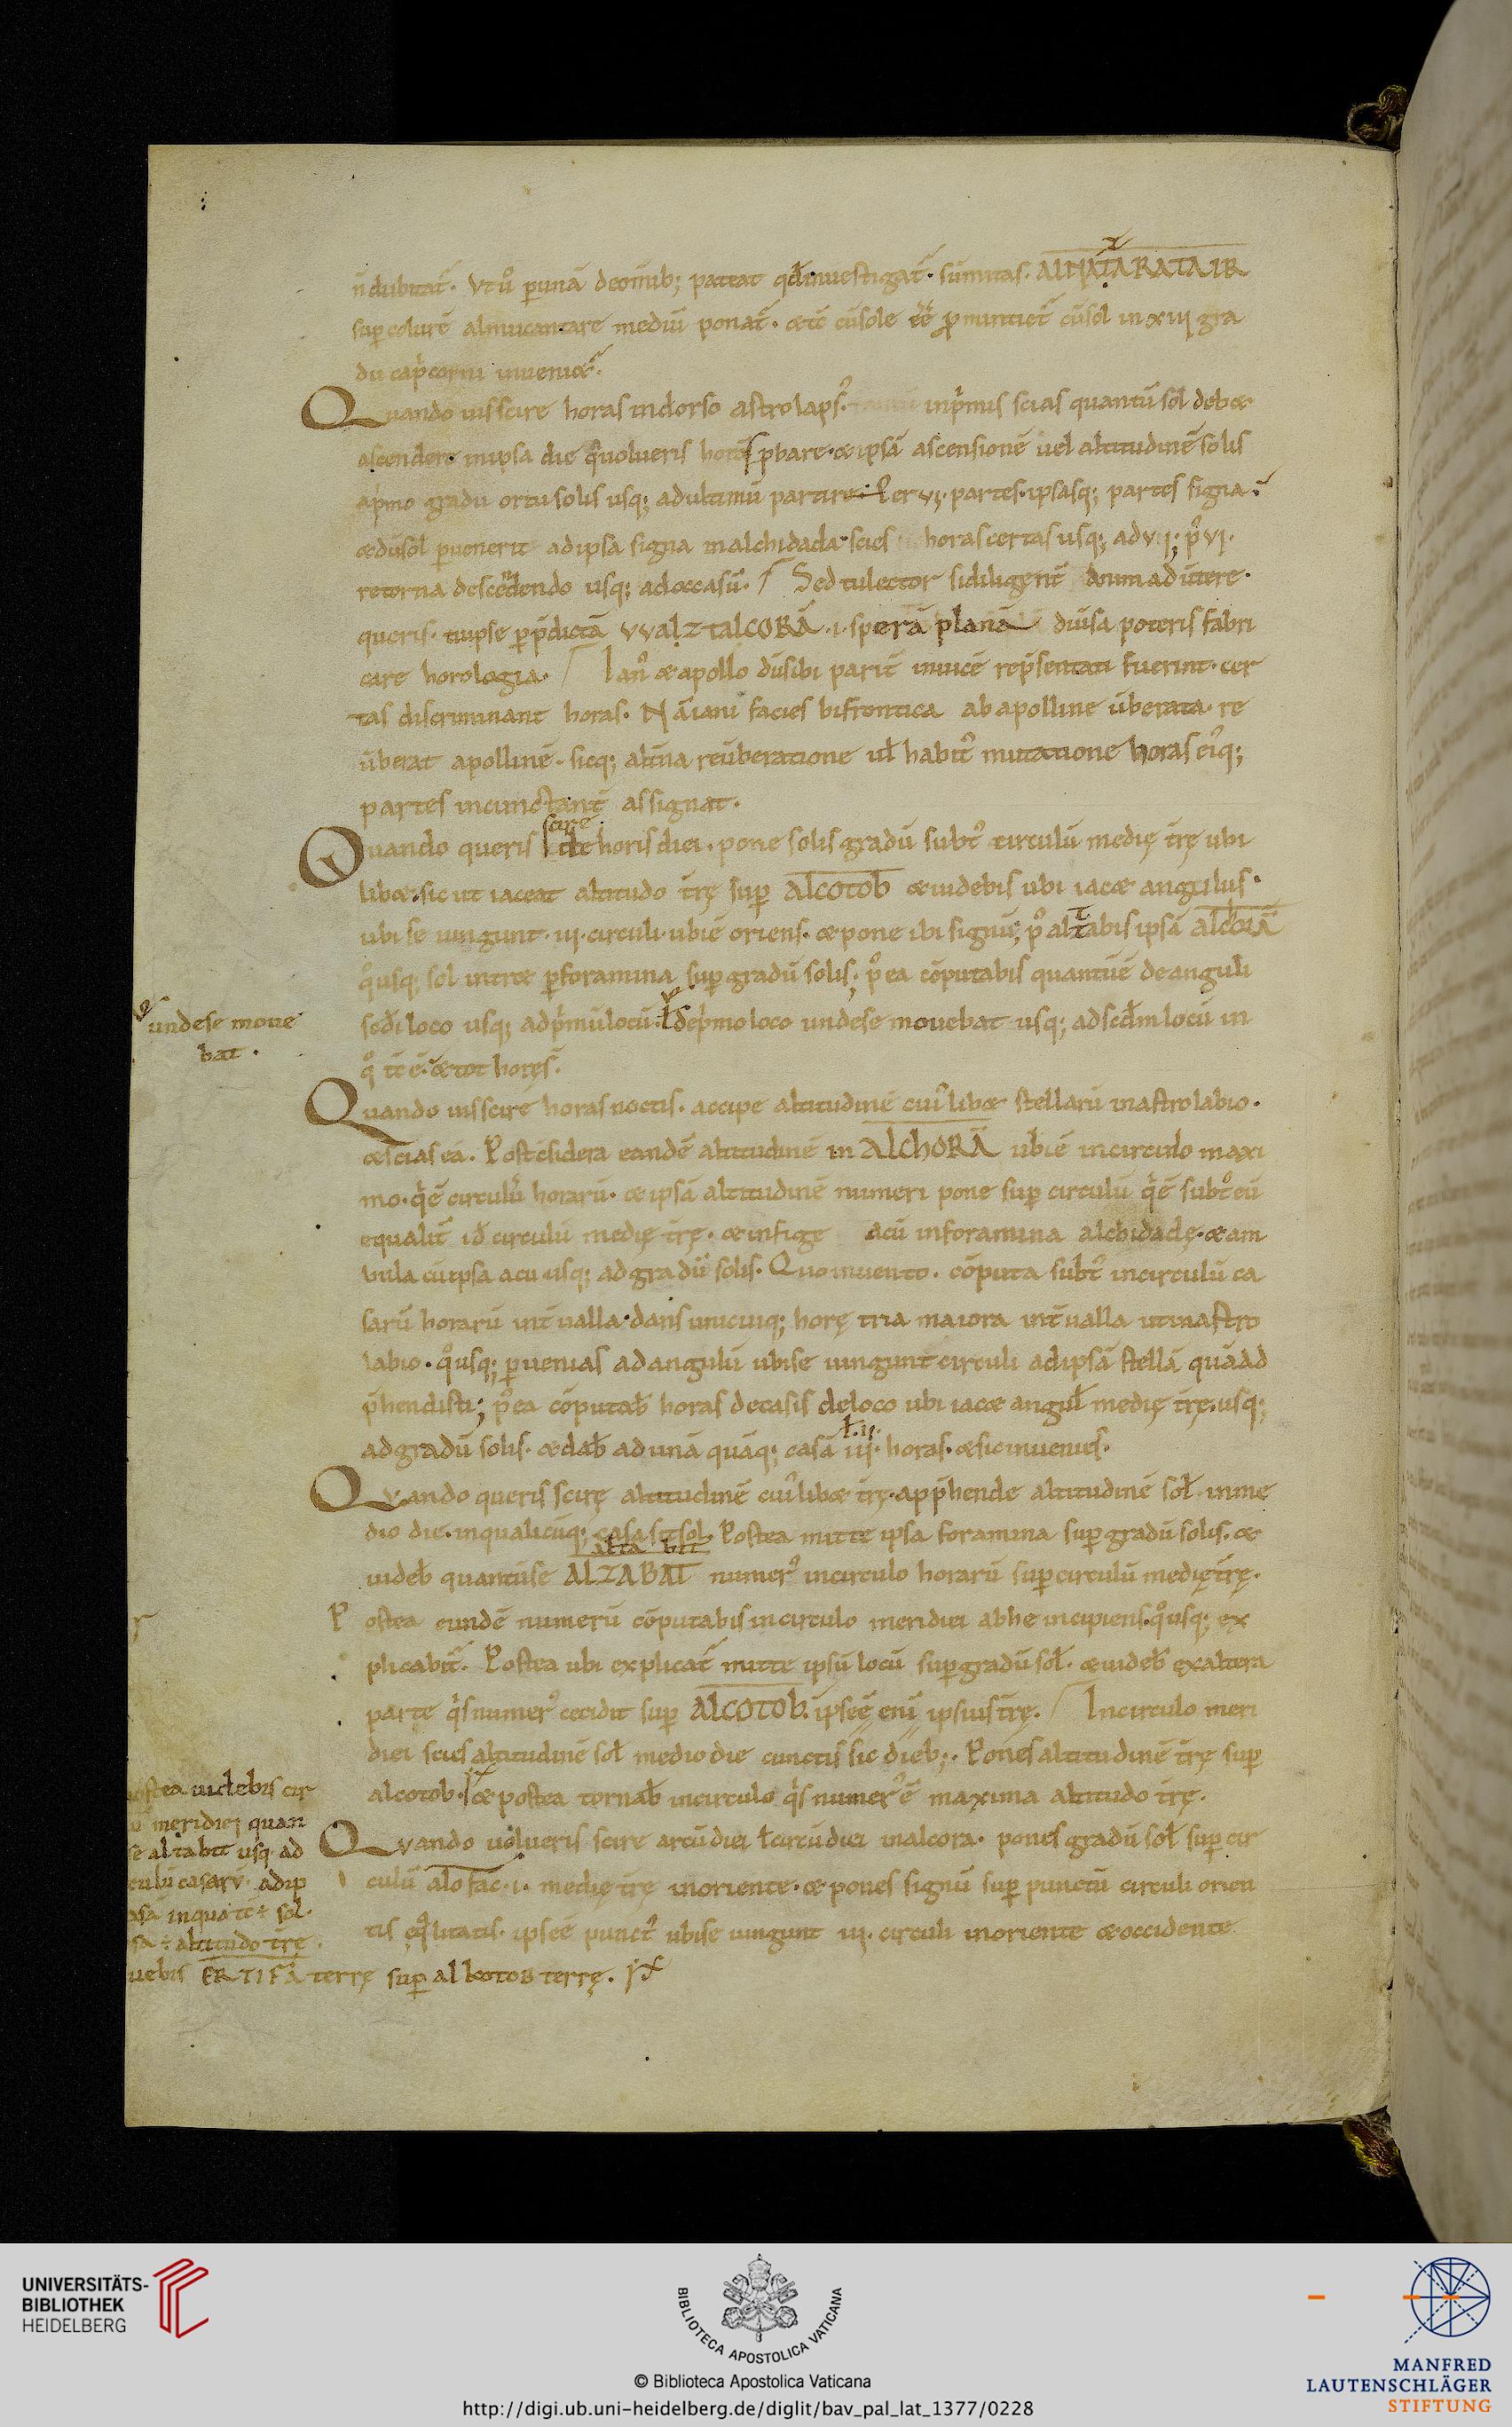 n̄dubitat̄. Vt ů punā deom̄ib; pateat qđinuestigat̄. sūmitas. ALNATARATAIR
sup colurē almucantare mediū ponat̄. &tc̄ cūsole pnuntiet̄ cūsol in xiii gra
du capcorni inueni&.
Quando uis scire horas indorso astrolaps. inprimis scias quantū sol deb&
ascendere inipsa die q̄uolueris horas pbare. &ipsā ascensionē uel altitudinē solis
apmo gradu ortu solis usq; adultimū partire. Per vi. partes. ipsasq; partes signa.
&dūsol puenerit adipsa signa inalchidada. scies horas certas usq; ad vi; p' vi.
retorna descendendo usq; adoccasū. Sed tu lector si diligent̄ animaduertere.
queris. tuipse p p̄dictā vvalztalCORĀ .i. sperā planā diuisa poteris fabri
care horologia. Ian' & apollo dūsibi parit̄ inuicē rep̄sentati fuerint. cer
tas discriminant horas. Nā iani facies bifrontica ab apolline ūberata. re
ūberat apollinē. sicq; alt̄na reūberatione ul habit' mutatione horas ei'q;
partes incunctant̄ assignat.
Quando queris scire de horis diei. pone solis gradū subt' circulū medię trę ubi
lib&. sic ut iaceat altitudo trę sup ALCOTOB &uidebis ubi iac& angulus.
ubi se iungunt. iii. circuli. ubiē oriens. &pone ibi signū; p' altabis ipsā alcorā
q̊usq; sol intr& pforamina sup gradū solis; p' ea cōputabis quantūē deanguli
scdi loco usq; adp̄mūlocū. ł dep̄mo loco unde se mouebat usq; adscdm locū in
q̊ tc̄ ē. &tot horęs̄.
unde se moue
bat.
Quando uis scire horas noctis. accipe altitudinē cui'lib& stellarū inastrolabio.
&scias eā. Post cōsidera eandē altitudinē in ALCHORĀ ubiē incirculo maxi
mo. q̄ē circulus horarū. &ipsā altitudinē numeri pone sup circulū q̄ē subt' eū
equalit̄ id circulū medię trę. &infige acū inforamina alchidadę. &am
bula cū ipsa acu usq; adgradū solis. Quo inuento. cōputa subt' incirculū ca
sarū horarū int̄ualla. dans unicuiq; horę tria maiora int̄ualla ut inastro
labio. q̊usq; puenias adangulū ubise iungunt circuli adipsā stellā quāad
p̄hendisti; p' ea cōputab horas decasis deloco ubi iac& angul medię trę. usq;
adgradū solis. &dab adunā quāq; casā iii. horas. &sic inuenies.
ł .ii.
Quando queris scirę altitudinē cui'lib& trę. app̄hende altitudinē sol inme
dio die. inqualicūq; casa sit sol. Postea mitte ipsa foramina sup gradū solis. &
alta bit
uideb quantūse ALZABAT numer' incirculo horarū sup circulū medię trę.
Postea eundē numerū cōputabis incirculo meridiei abhe incipiens. q̊usq; ex
plicabit̄. Postea ubi explicat̄ mitte ipsū locū sup gradū sol. &uideb exaltera
parte q̄s numer' cecidit sup ALCOTOB. ipseē enī ipsius trę. Incirculo meri
diei scies altitudinē sol medio die cunctis sic dieb;. Pones altitudinē trę sup
alcotob. &postea tornab incirculo q̄s numer'ē maxima altitudo trę.
Quando uolueris scire arcū diei ł circū diei inalcora. pones gradū sol sup cir
culū alofac .i. medię trę inoriente. &pones signū sup punctū circuli orien
tis ęq̊litatis. ipseē punct' ubise iungunt iii. circuli inoriente &occidente
ostea uidebis cir
meridiei quan
se altabit usq; ad
culū casarū. adip
asā inqua tc ÷ sol.
sa ÷ altitudo trę.
uebis ERTIFĀ terrę sup alkotob terrę.
UNIVERSITÄTS-
BIBLIOTHEK
HEIDELBERG
BIBLIOTECA APOSTOLICA VATICANA
© Biblioteca Apostolica Vaticana
http://digi.ub.uni-heidelberg.de/diglit/bav_pal_lat_1377/0228
MANFRED
LAUTENSCHLÄGER
STIFTUNG